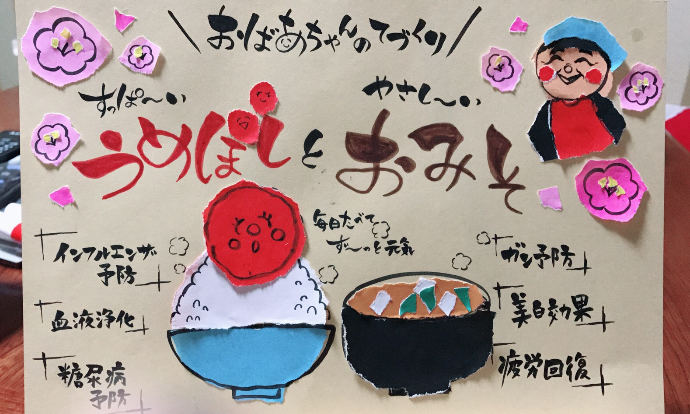 \おばあちゃんのてづくり/
すっぱ～い
やさし～い
うめぼしとおみそ
毎日たべて
ず～っと元気
インフルエンザ
予防
血液浄化
糖尿病
予防
ガン予防
美白効果
疲労回復